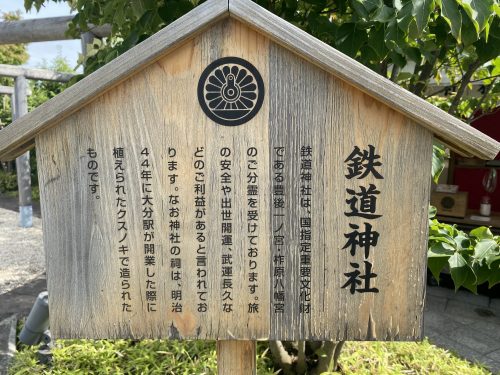 鉄道神社
鉄道神社は、国指定重要文化財
である豊後一ノ宮・柞原八幡宮
のご分霊を受けております。旅
の安全や出世開運、武運長久な
どのご利益があると言われてお
ります。なお神社の祠は、明治
44年に大分駅が開業した際に
植えられたクスノキで造られた
ものです。